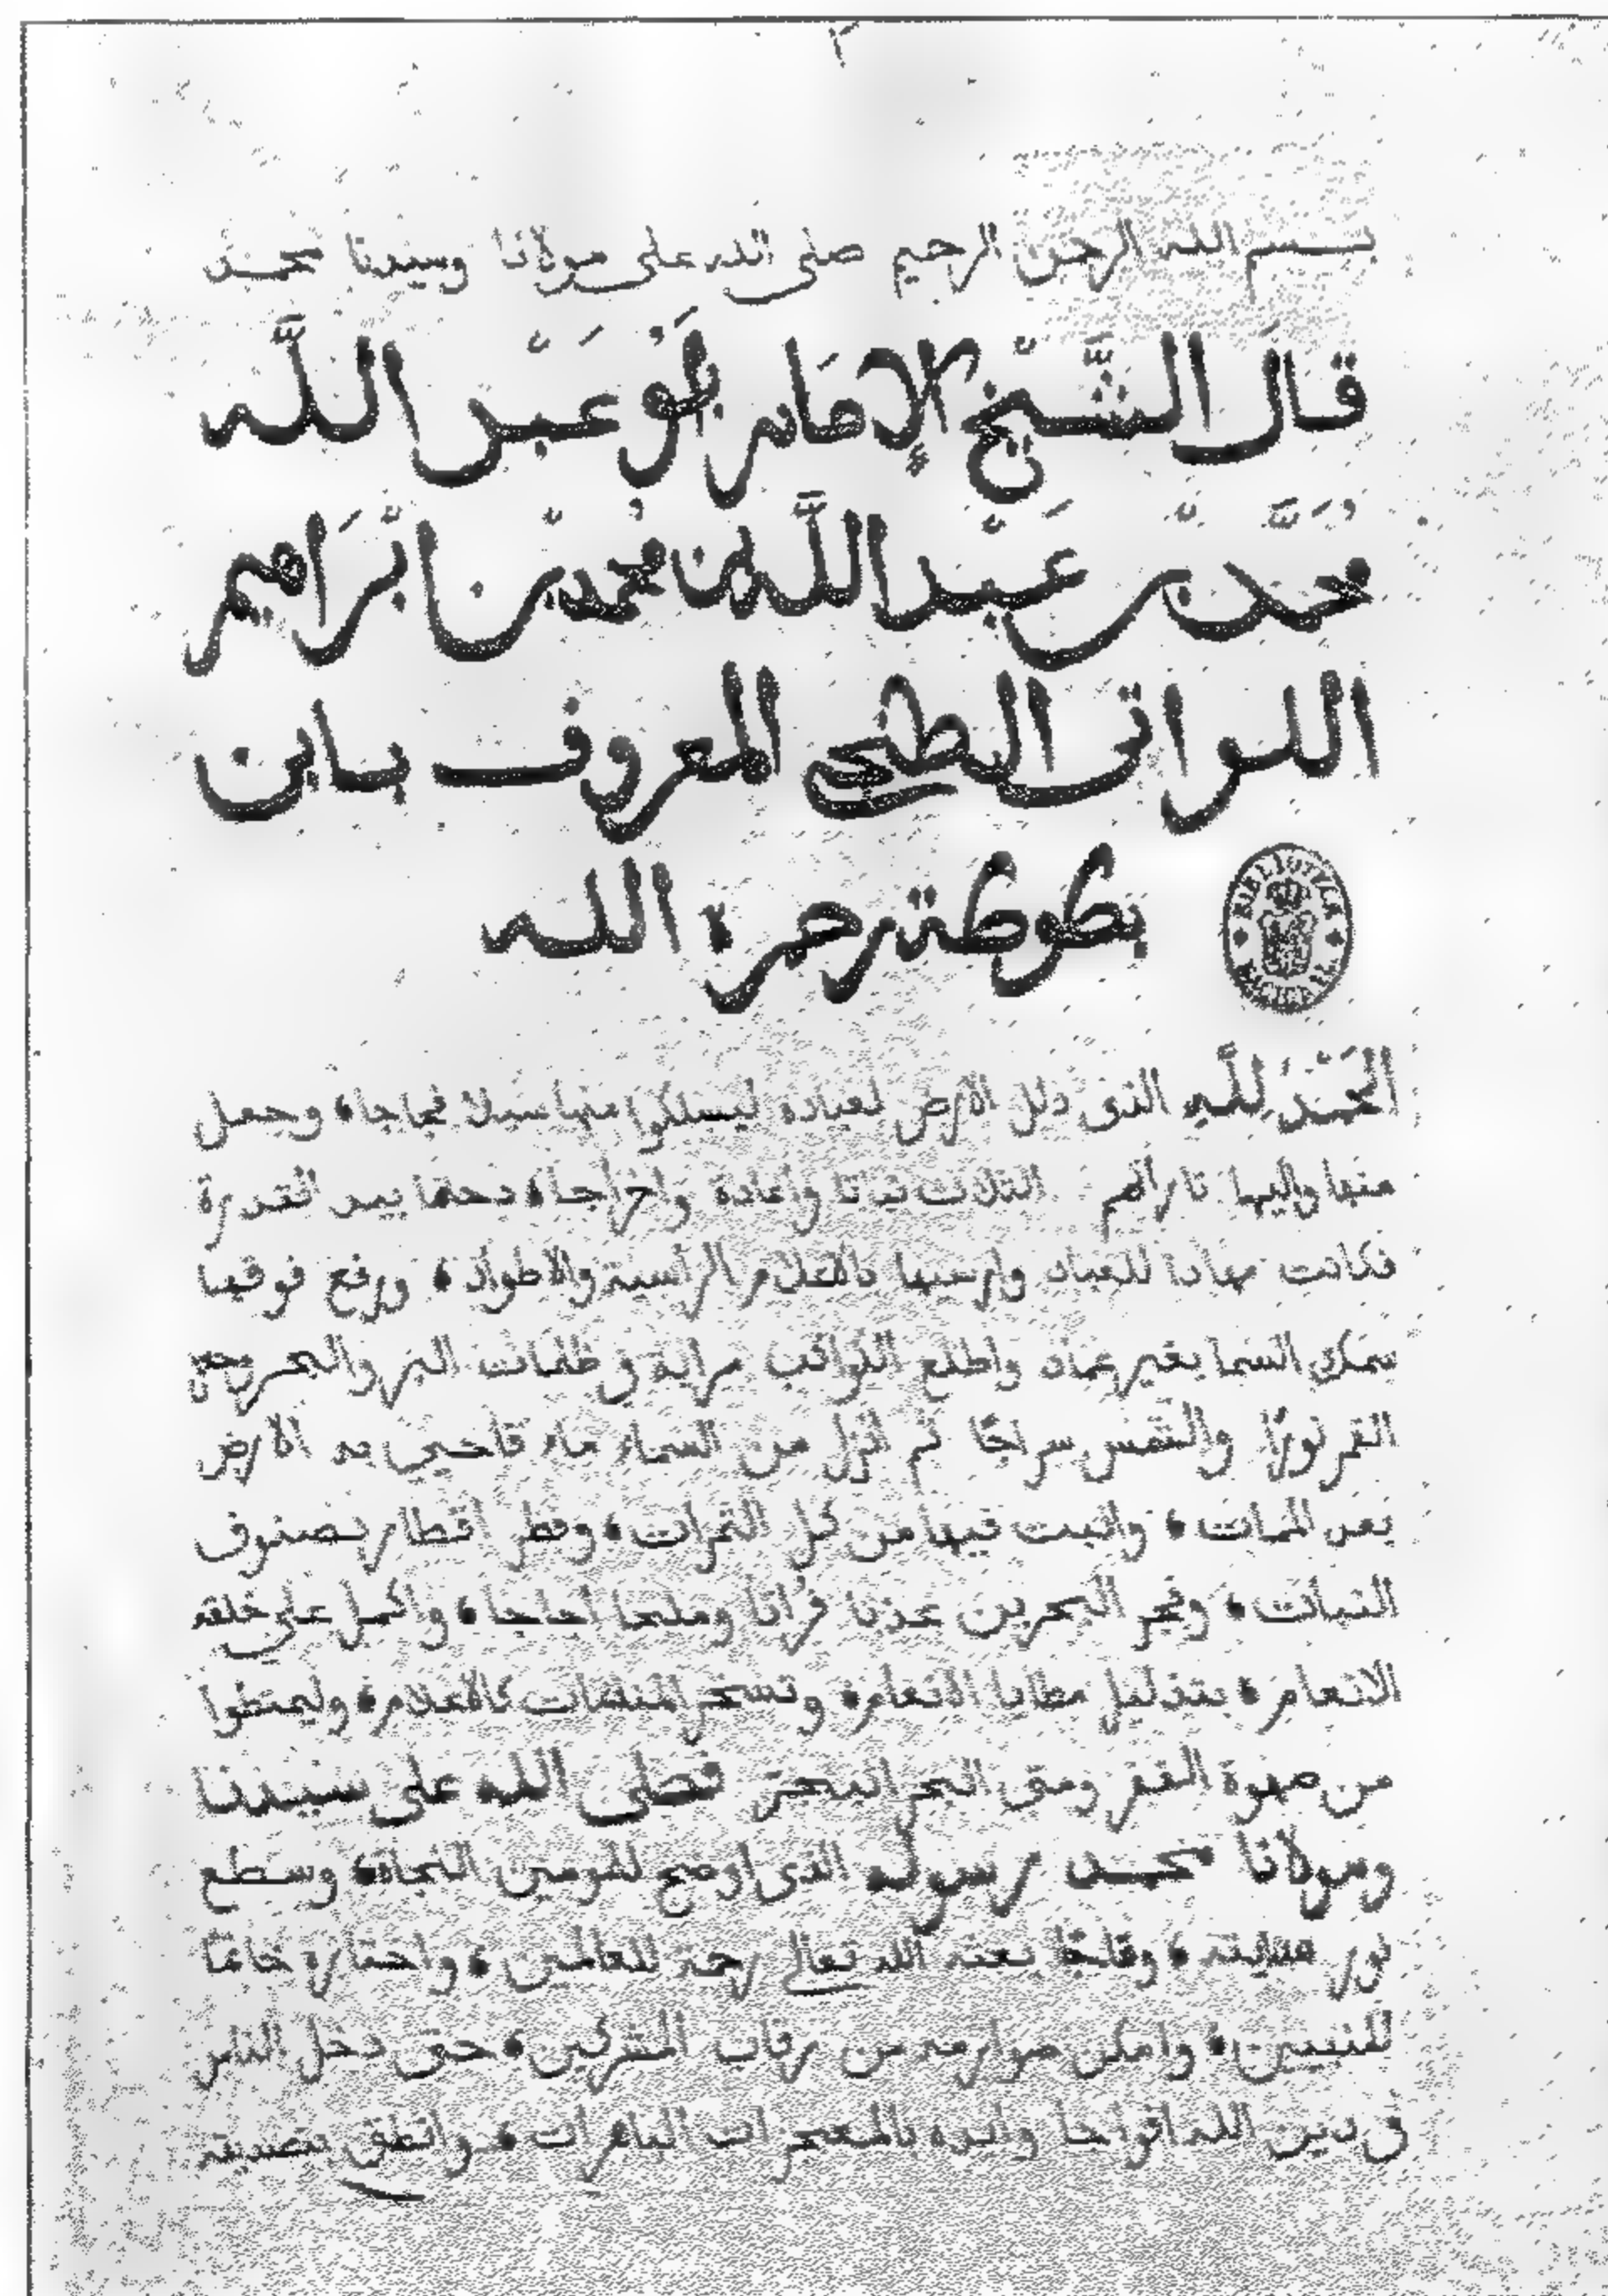 بسم الله الرحمن الرحيم صلى الله على مولانا وسيدنا محمد
قَالَ الشَّيْخ الإمَام أبُو عَبْد اللَّه
مُحَمَّد بْن عَبْد اللَّه بن محمد بْن ابْرَاهيم
اللواتى الطنجى المعروف بابن
بطوطة رحمه الله
الحَمْدُ لِلَّهِ الذى ذلل الارض لعباده ليسلكوا منها سبلا فجاجا، وجعل
منها واليها تاراتهم الثلاث نباتا واعادة واخراجا، دحاها بيد القدرة
فكانت مهادا للعباد وارسيها بالاعلام الراسية والاطواد، ورفع فوقها
سمك السما بغير عماد واطلع الكواكب هداية فى ظلمات البر والبحر وجعل
القمر نورًا والشمس سراجًا ثم انزل من السماء ماء فاحيى به الارض
بعد الممات، وانبت فيها من كل الثمرات، وفطر اقطار بصنوف
النبات، وفجر البحرين عذبا فراتا وملحا اجاجا، واكمل على خلقه
الانعام، بتذليل مطايا الانعام، وتسخير المنشئات كالاعلام، وليمتطوا
من صهوة القفر ومتن البحر فصلى الله على سيدنا
ومولانا محمد رسوله الذى اوضح للمومنين النجاة، وسطع
نور هدايته، وهاجًا بعثه الله تعالى رحمة للعالمين، واختاره خاتما
للنبيين، وامكن صوارمه من رقاب المشركين، حتى دخل الناس
فى دين الله افواجا وايده بالمعجزات الباهرات، وانطق بتصديقه
BIBLIOTECA